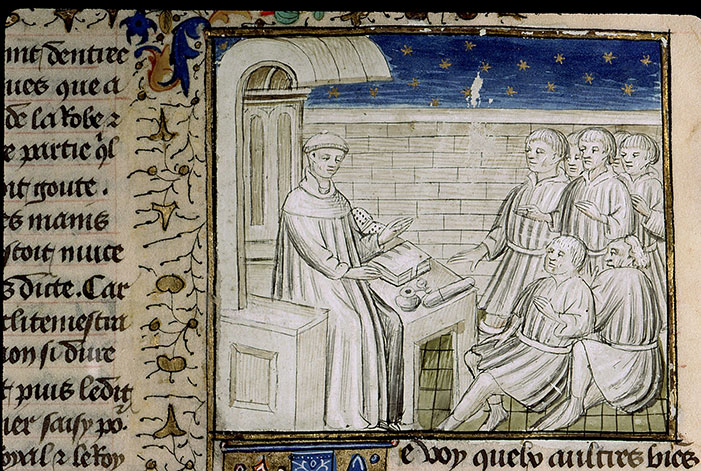 mit dentree
ques que a
de la robe ⁊
e partie q̄l
oit goute.
es mains
stoit nuice
s dicte. Car
clitemestra
non si dure
t puis ledit
ier saisy po᷑
oyal ⁊ le Roy
e voy quelx aultres biẽs